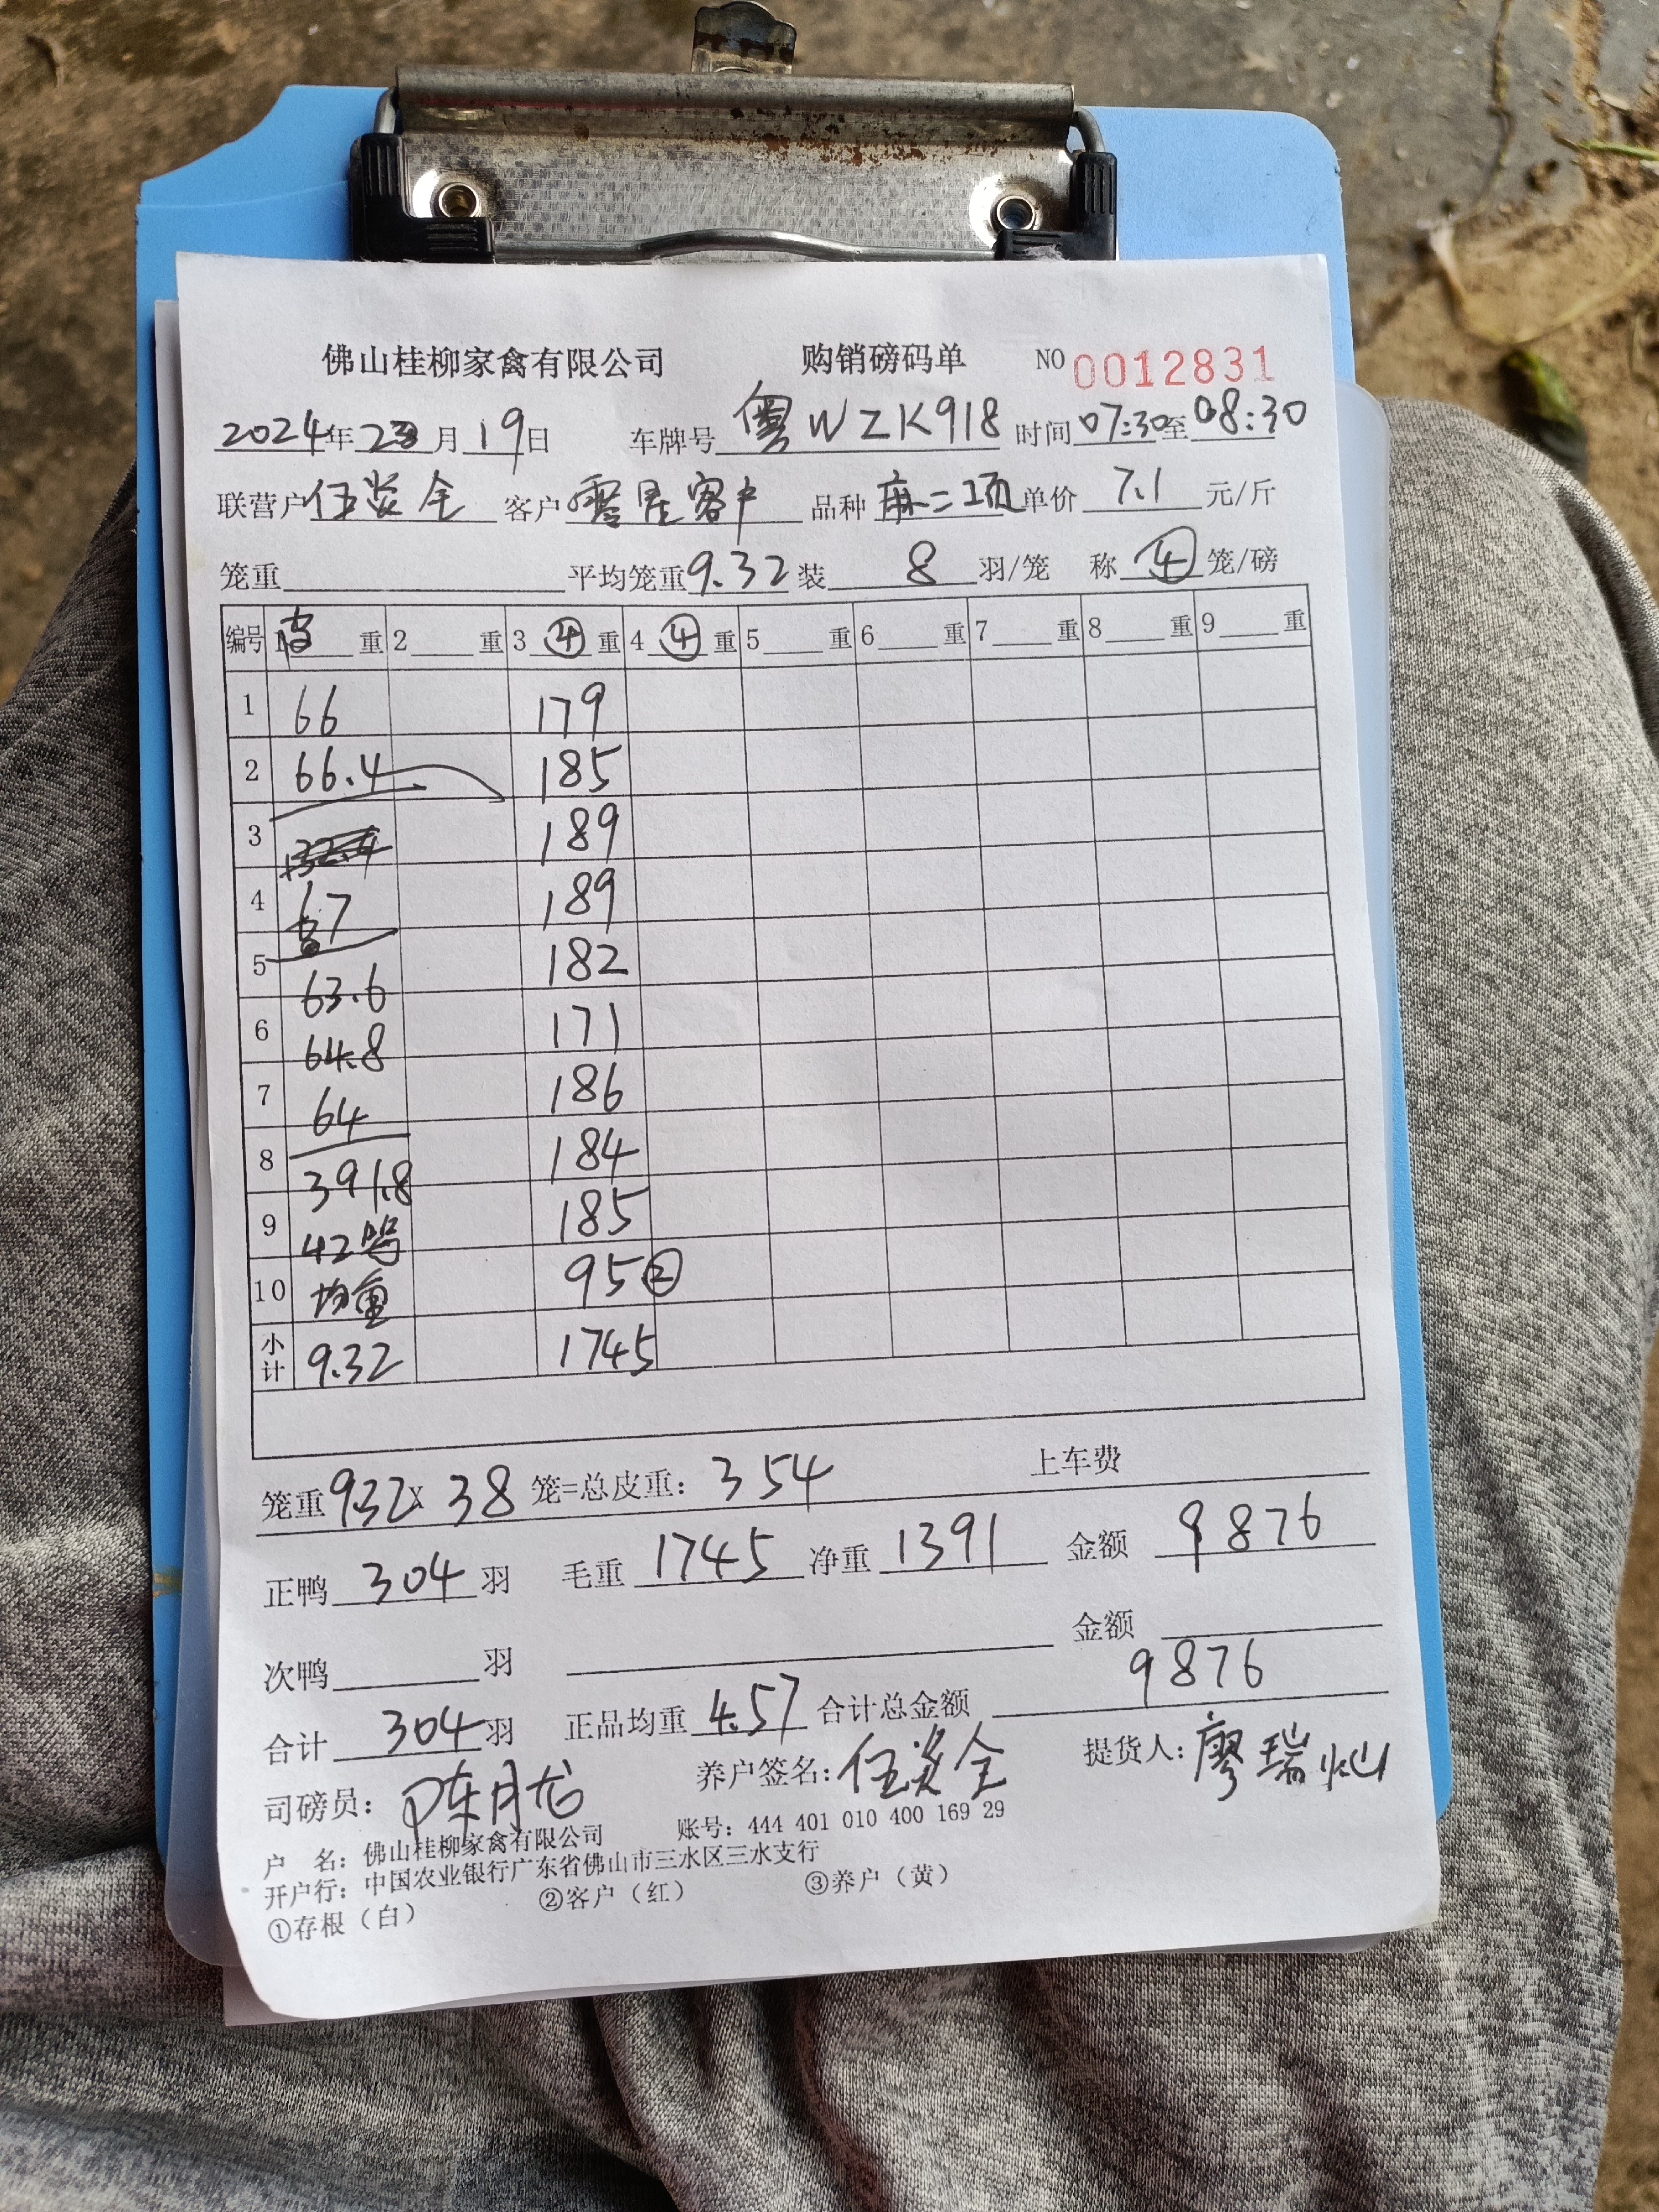 佛山桂柳家禽有限公司 购销磅码单 NO 0012831
2024年2月19日 车牌号 粤WZK918 时间07:30至08:30
联营户 伍炎全 客户 零星客户 品种 麻二项 单价 7.1 元/斤
笼重 平均笼重9.32 装 8 羽/笼 称 ④ 笼/磅
编号 1皮 重 2 重 3 ④ 重 4 ④ 重 5 重 6 重 7 重 8 重 9 重
1 66 179
2 66.4 185
3 189
4 67 189
5 182
63.6
6 64.8 171
7 64 186
8 391.8 184
9 42笼 185
10 均重 95②
小计 9.32 1745
笼重9.32x 38 笼=总皮重: 354 上车费
正鸭 304 羽 毛重 1745 净重 1391 金额 9876
次鸭 羽 金额
合计 304 羽 正品均重 4.57 合计总金额 9876
司磅员: 陈月龙 养户签名: 伍炎全 提货人: 廖瑞灿
户 名: 佛山桂柳家禽有限公司 账号: 444 401 010 400 169 29
开户行: 中国农业银行广东省佛山市三水区三水支行
①存根(白) ②客户(红) ③养户(黄)